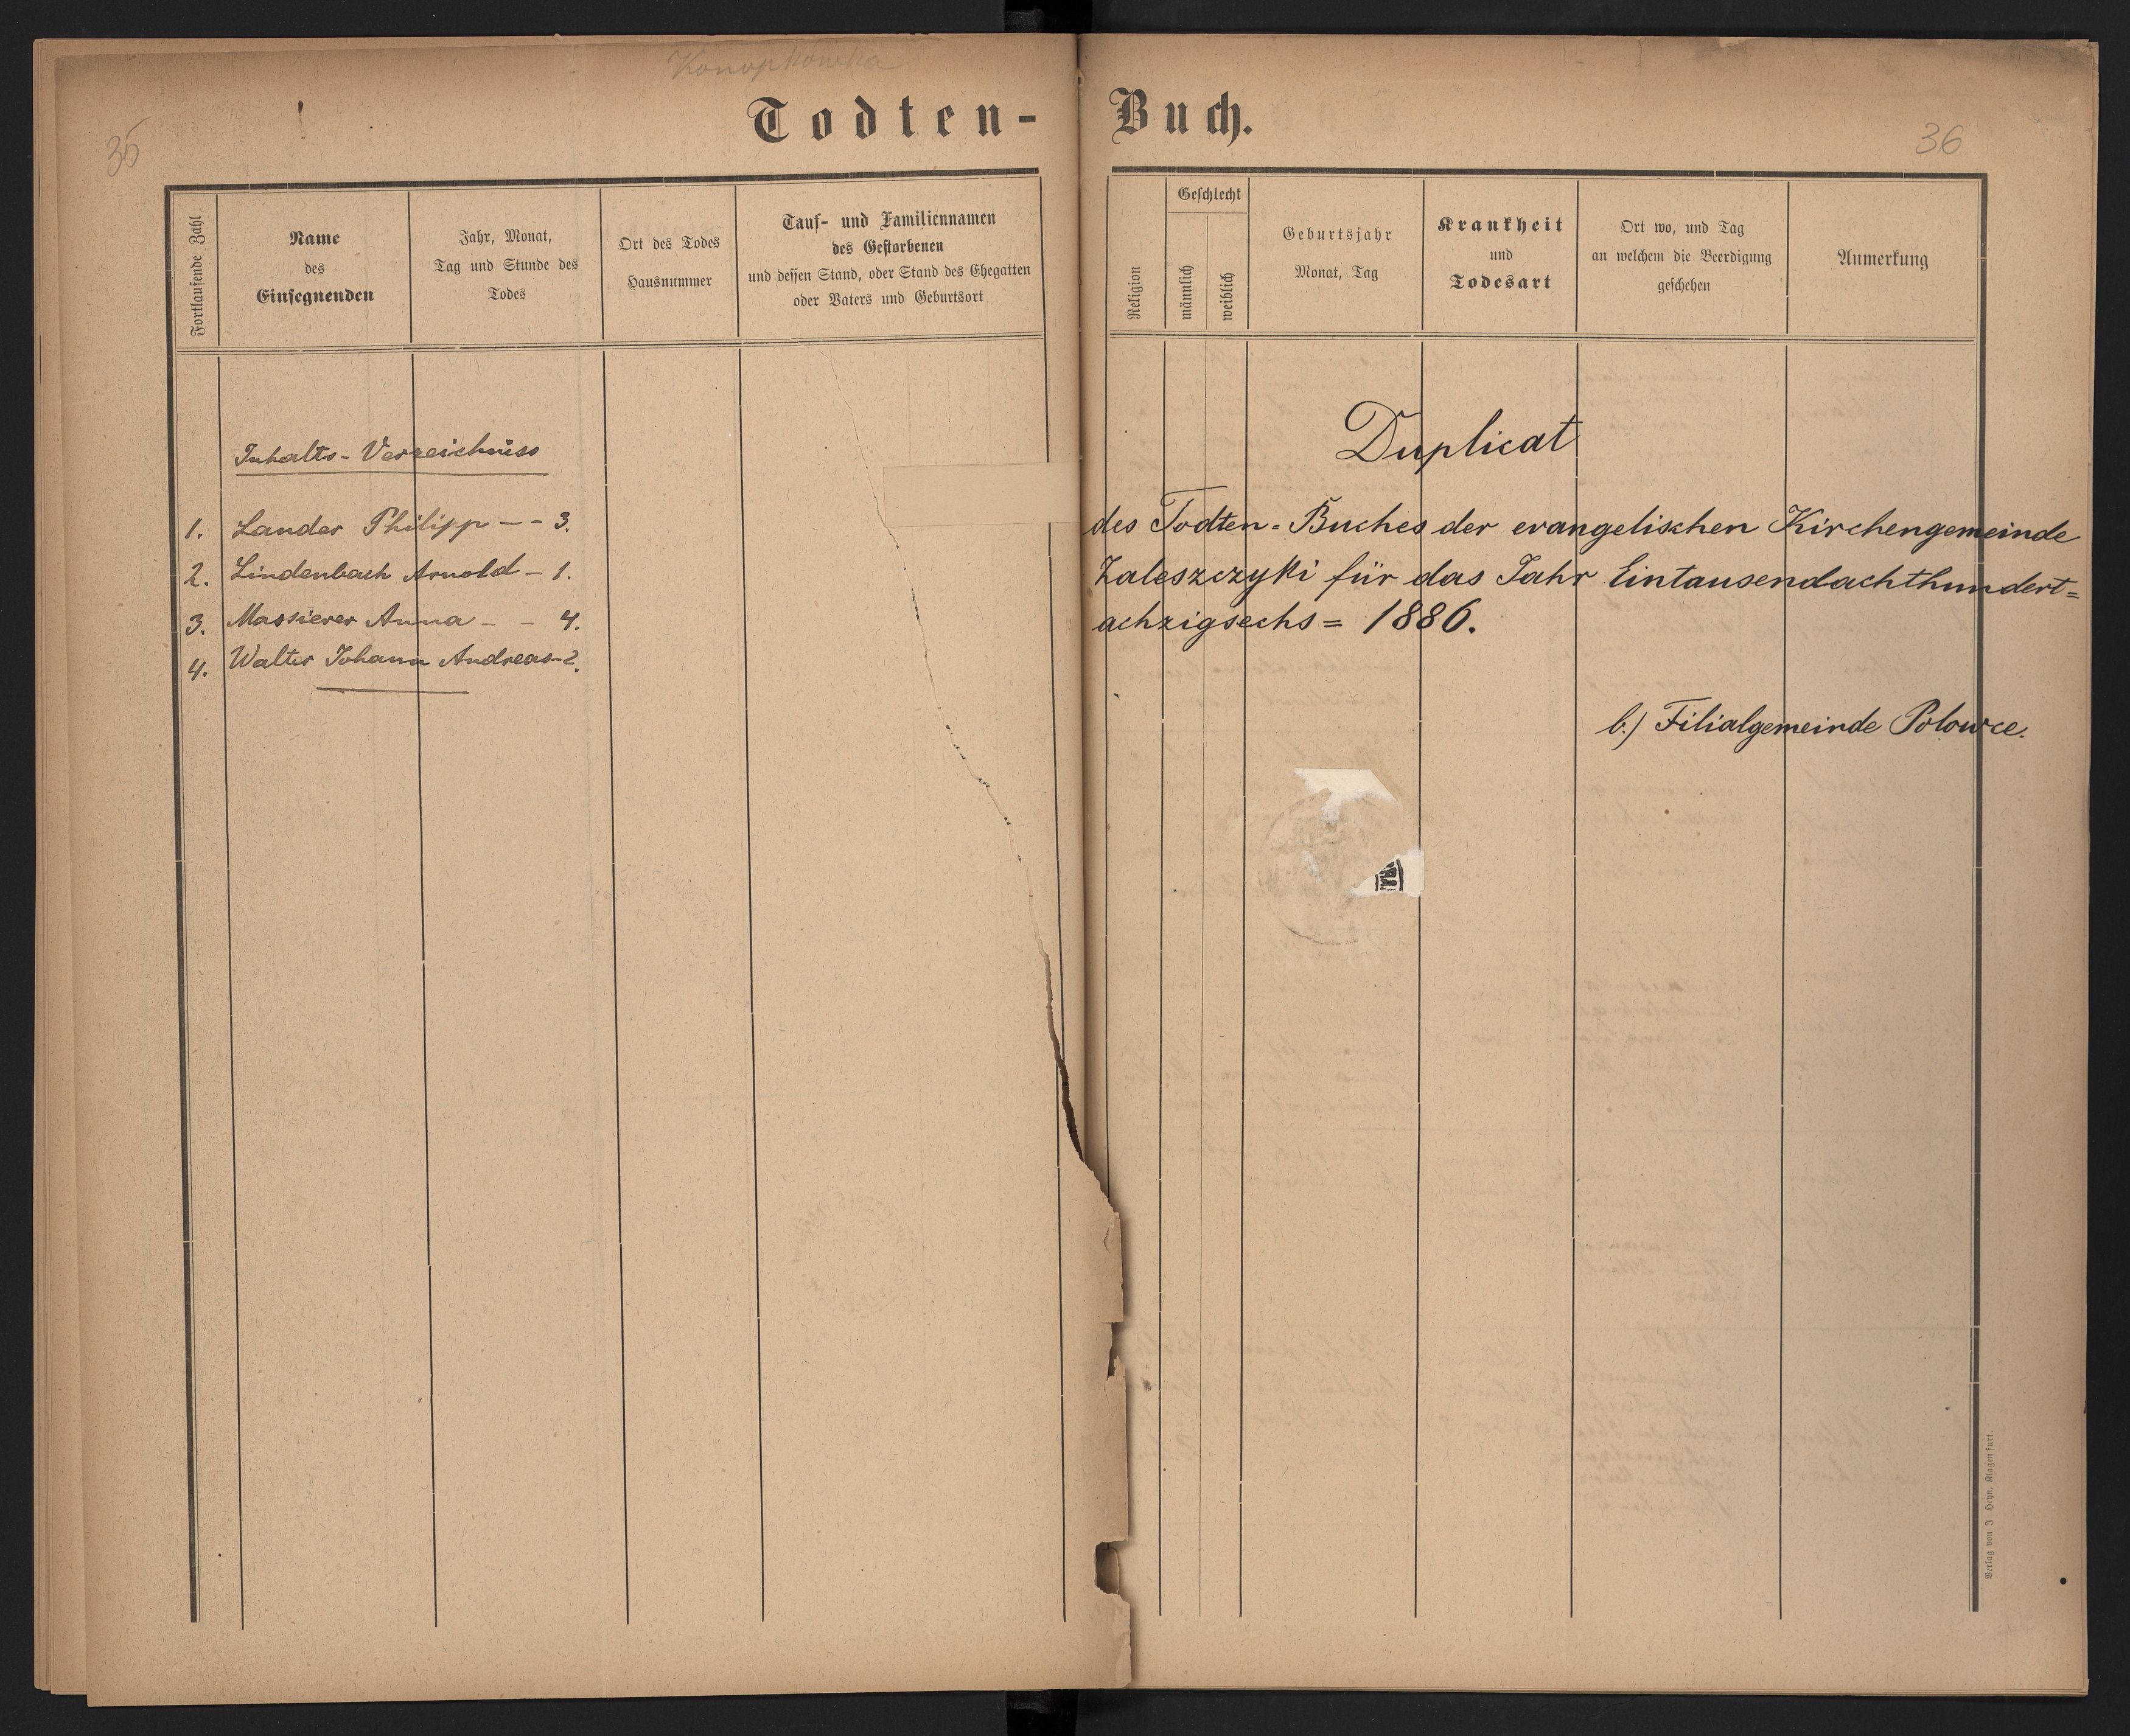 Konopkówka
Todten-
35
Fortlaufende Zahl
Name
des
Einsegnenden
Jahr, Monat,
Tag und Stunde des
Todes
Ort des Todes
Hausnummer
Tauf- und Familiennamen
des Gestorbenen
und dessen Stand, oder Stand des Ehegatten
oder Vaters und Geburtsort
Inhalts-Verzeichniss
1. Lander Philipp - - 3.
2. Lindenbach Arnold - 1.
3. Massierer Anna - - 4.
4. Walter Johann Andreas - 2.
Buch.
36
Religion
Geschlecht
männlich
weiblich
Geburtsjahr
Monat, Tag
Krankheit
und
Todesart
Ort wo, und Tag
an welchem die Beerdigung
geschehen
Anmerkung
Duplicat
des Todten=Buches der evangelischen Kirchengemeinde
Zaleszczyki für das Jahr Eintausendachthundert=
achzigsechs = 1886.
b.) Filialgemeinde Polowce.
Verlag von J Heyn, Klagenfurt.